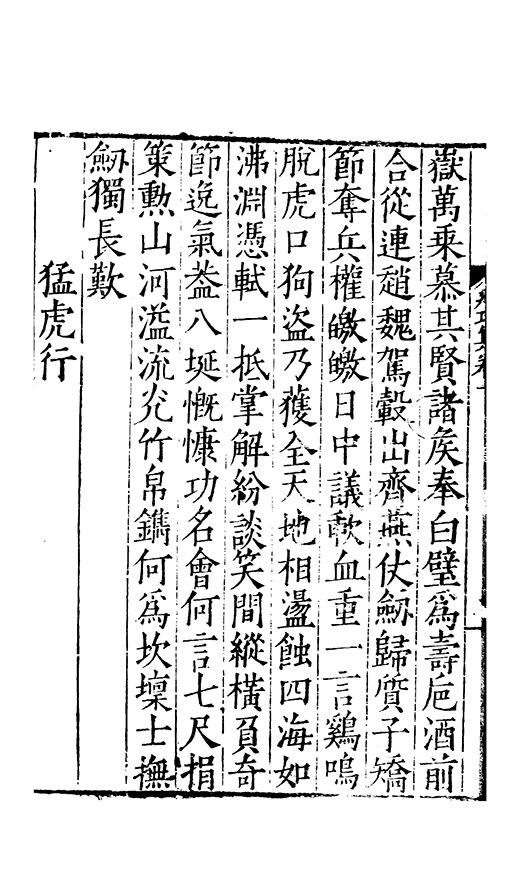 嶽萬乗慕其賢諸矦奉白璧爲壽巵酒前
合從連趙魏駕轂出齊燕仗劒歸質子矯
節奪兵權皦皦日中議歃血重一言鷄鳴
脫虎口狗盜乃獲全天地相盪蝕四海如
沸淵憑軾一抵掌解紛談笑間縱橫負奇
節逸氣葢八埏慨慷功名會何言七尺捐
策勲山河溢流光竹帛鐫何爲坎壈士撫
劒獨長歎
猛虎行